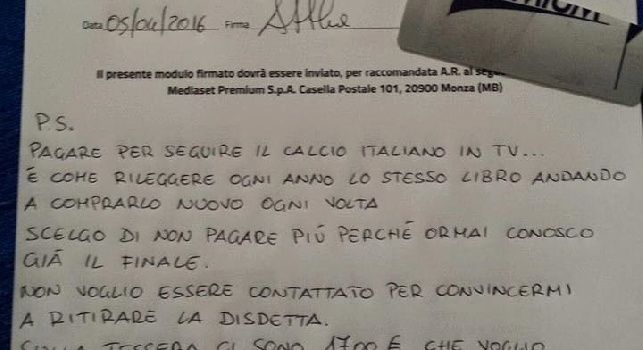 Data 05/04/2016 Firma
Il presente modulo firmato dovrà essere inviato, per raccomandata A.R. al
Mediaset Premium S.p.A. Casella Postale 101, 20900 Monza (MB)
P.S.
PAGARE PER SEGUIRE IL CALCIO ITALIANO IN TV...
È COME RILEGGERE OGNI ANNO LO STESSO LIBRO ANDANDO
A COMPRARLO NUOVO OGNI VOLTA
SCELGO DI NON PAGARE PIÚ PERCHÉ ORMAI CONOSCO
GIÁ IL FINALE.
NON VOGLIO ESSERE CONTATTATO PER CONVINCERMI
A RITIRARE LA DISDETTA.
SULLA TESSERA CI SONO 1700 € CHE VOGLIO